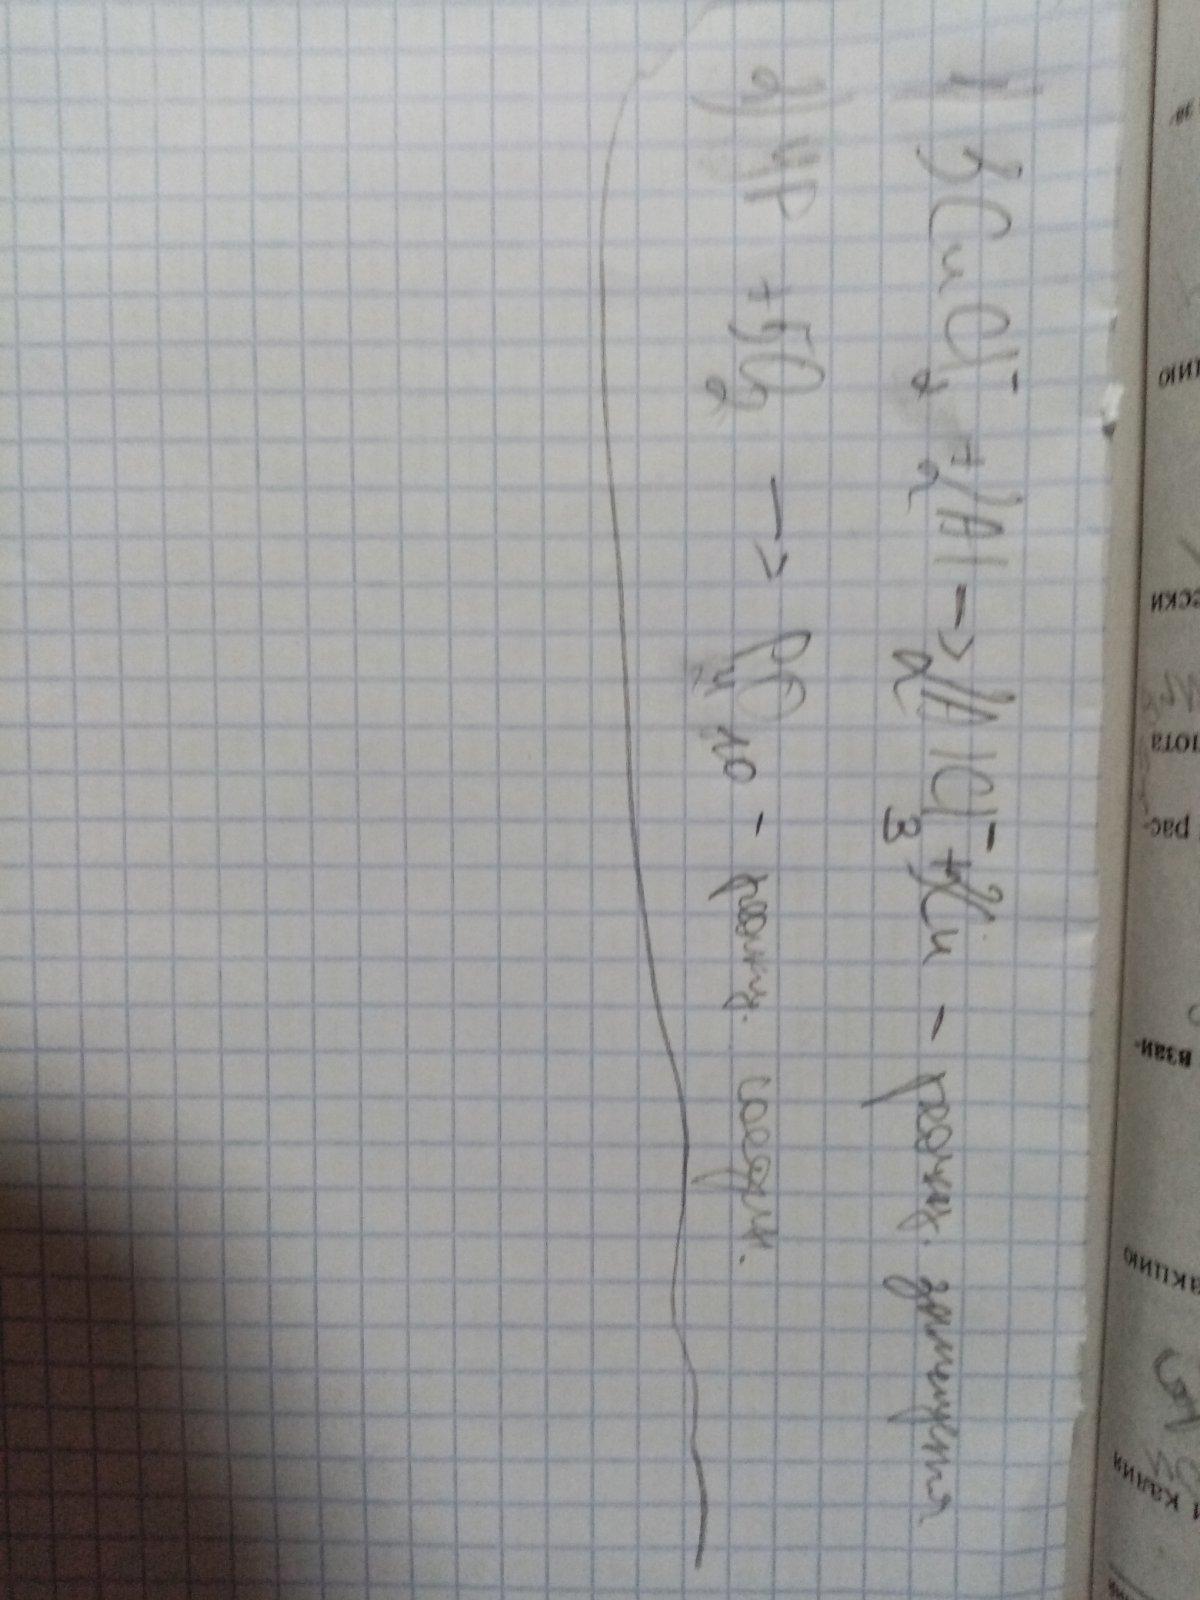 1) 3CuCl₂⁻ + 2Al → 2AlCl₃⁻ + 3Cu – реакц. замещения
2) 4P + 5O₂ → P₄O₁₀ - реакц. соедин.
цию
ески
лота
рас-
взаи-
акцию
и калия